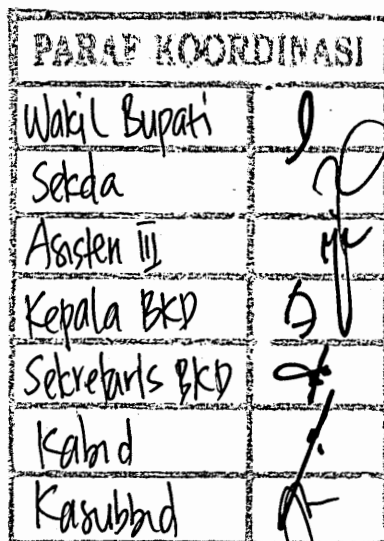 PARAF KOORDINASI
Wakil Bupati
Sekda
Asisten III
Kepala BKD
Sekretaris BKD
Kabid
Kasubbid